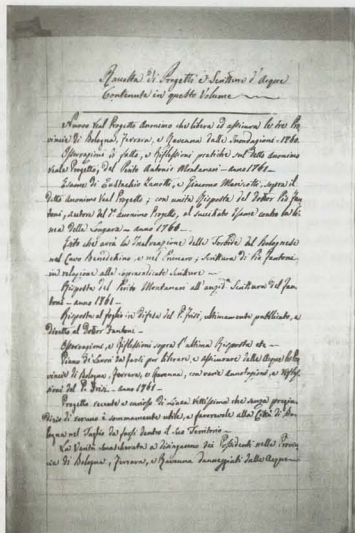 Raccolta di Progetti e Scritture d'Acque
Contenute in questo Volume
Nuovo Real Progetto Anonimo che libera ed assicura le tre Pro
vincie di Bologna, Ferrara, e Ravenna dalle Inondazioni - 1760.
Osservazioni di fatto, e Riflessioni pratiche sul detto Anonimo
Reale Progetto, del Perito Antonio Montanari - anno 1761 -
Esame di Eustachio Zanotti, e Giacomo Marescotti, sopra il
detto Anonimo Real Progetto; con unita Risposta del Dottor Pio Fan
toni, autore del 1° anonimo Progetto, al suscitato Esame contro la li
nea della in anno 1760 -
Esito che avrà la Inalveazione delle Torbide del Bolognese
nel Cavo Benedettino, e nel Primaro; Scrittura di Pio Fantoni,
in relazione alle Scritture -
Risposta del Perito Montanari all' Scrittura del Fan
toni - anno 1761 -
Risposta al foglio in difesa del P. Frisi, ultimamente pubblicato, e
diretto al Dottor Fantoni -
Osservazioni, e Riflessioni sopra l'ultima Risposta etc -
Piano di Lavori da farsi per liberare, e assicurare dalle Acque le Pro
vincie di Bologna, Ferrara, e Ravenna, con varie Annotazioni, e Rifles
sioni del P. Frisi - anno 1761 -
Progetto recente e curioso di Linea che senza pregiu
dizio di veruno è sommamente utile, e favorevole alla Città di Bo
logna nel Taglio da farsi dentro il suo Territorio -
La Verità smascherata a disinganno dei Possidenti nelle Provin
cie di Bologna, Ferrara, e Ravenna danneggiati dalle Acque -